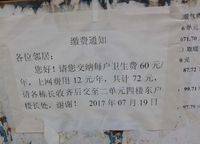 缴费通知
各位邻居:
您好!请您交纳每户卫生费 60 元/
年,上网费用 12 元/年,共计 72 元,
请各栋长收齐后交至二单元四楼东户
楼长处,谢谢! 2017 年 07 月 19 日
671.70
99.71
97.72